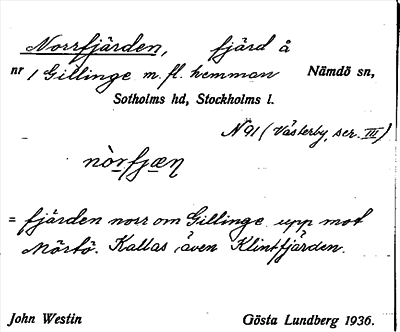 Norrfjärden, fjärd å
nr 1 Gillinge m. fl. hemman Nämdö sn,
Sotholms hd, Stockholms l.
N 91 (Västerby, ser. III)
nòrfjæṇ
= fjärden norr om Gillinge upp mot
Mörtö. Kallas även Klintfjärden.
John Westin Gösta Lundberg 1936.